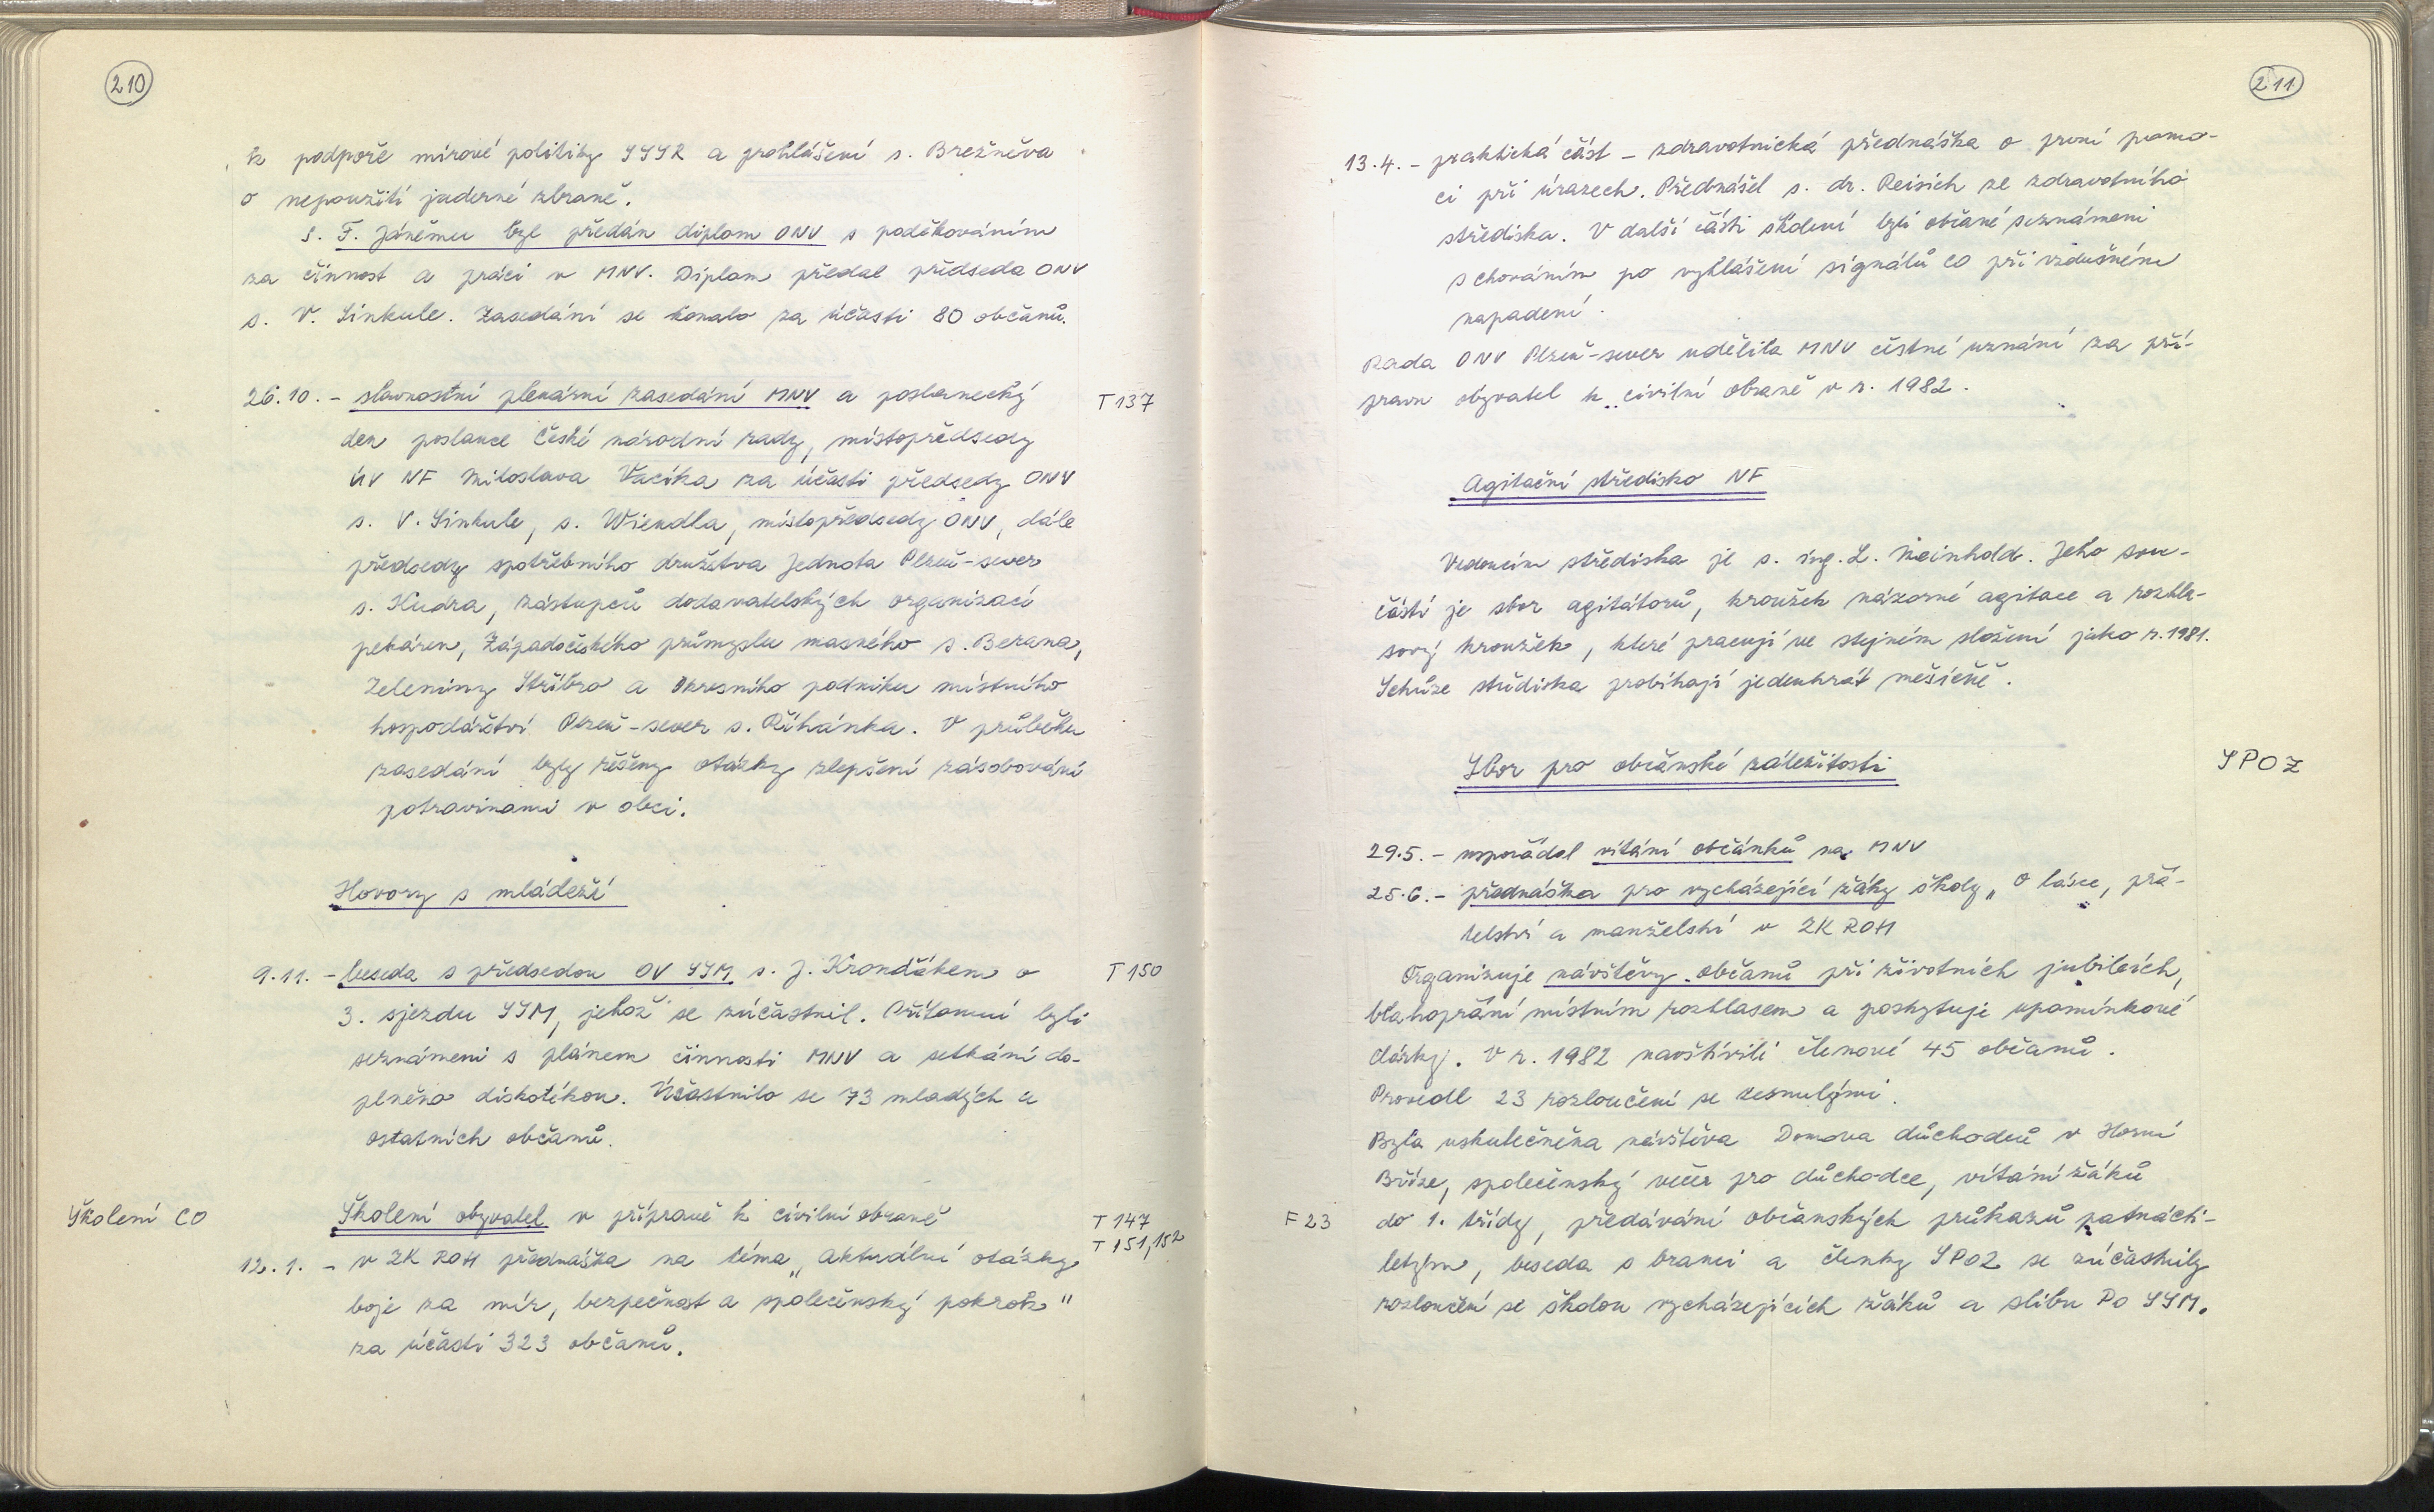 210
k podpoře mírové politiky SSSR a prohlášení s. Brežněva
o nepoužití jaderné zbraně.
S. F. Jáněmu byl předán diplom ONV s poděkováním
za činnost a práci v MNV. Diplom předal předseda ONV
s. V. Sinkule. Zasedání se konalo za účasti 80 občanů.
26.10. - slavnostní plenární zasedání MNV a poslanecký
T 137
den poslance České národní rady, místopředsedy
ÚV NF Miloslava Vacíka za účasti předsedy ONV
s. V. Sinkule, s. Wiendla, místopředsedy ONV, dále
předsedy spotřebního družstva Jednota Plzeň-sever
s. Kudra, zástupců dodavatelských organizací
pekáren, Západočeského průmyslu masného s. Berana,
Zeleniny Stříbro a Okresního podniku místního
hospodářství Plzeň-sever s. Říhánka. V průběhu
zasedání byly řešeny otázky zlepšení zásobování
potravinami v obci.
Hovory s mládeží
9.11. - beseda s předsedou OV SSM s. J. Krondďákem o
T 150
3. sjezdu SSM, jehož se zúčastnil. Přítomní byli
seznámeni s plánem činnosti MNV a setkání do-
plněno diskotékou. Účastnilo se 73 mladých a
ostatních občanů.
Školení CO
Školení obyvatel v přípravě k civilní obraně
T 147
T 151, 152
12.1. - v ZK ROH přednáška na téma „Aktuální otázky
boje za mír, bezpečnost a společenský pokrok"
za účasti 323 občanů.
211
13.4. - praktická část - zdravotnická přednáška o první pomo-
ci při úrazech. Přednášel s. dr. Reisich ze zdravotního
střediska. V další části školení byli občané seznámeni
s chováním po vyhlášení signálů CO při vzdušném
napadení.
Rada ONV Plzeň-sever udělila MNV čestné uznání za pří-
pravu obyvatel k civilní obraně v r. 1982.
Agitační středisko NF
Vedoucím střediska je s. ing. L. Meinhold. Jeho sou-
částí je sbor agitátorů, kroužek názorné agitace a rozhla-
sový kroužek, které pracují ve stejném složení jako r. 1981.
Schůze střediska probíhají jedenkrát měsíčně.
Sbor pro občanské záležitosti
SPOZ
29.5. - uspořádal vítání občánků na MNV
25.6. - přednáška pro vycházející žáky školy „O lásce, přá-
telství a manželství v ZK ROH
Organizuje návštěvy občanů při životních jubileích,
blahopřání místním rozhlasem a poskytuje upomínkové
dárky. V r. 1982 navštívili členové 45 občanů.
Provedl 23 rozloučení se zesnulými.
Byla uskutečněna návštěva Domova důchodců v Horní
Bříze, společenský večer pro důchodce, vítání žáků
F 23
do 1. třídy, předávání občanských průkazů patnácti-
letým, beseda s branci a členky SPOZ se zúčastnily
rozloučení se školou vycházejících žáků a slibu PO SSM.